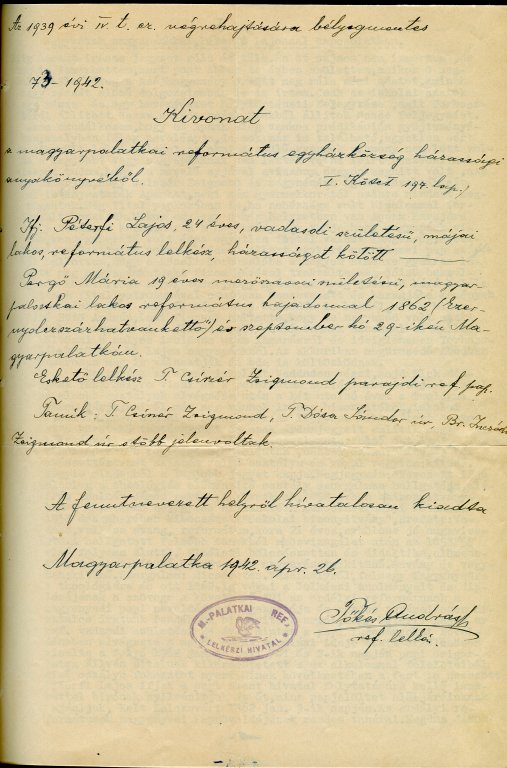 Az 1939 évi IV. t. cz. végrehajtására bélyegmentes
73-1942.
Kivonat
a magyarpalatkai református egyházközség házassági
anyakönyvéből. I. Kötet 194. lap.
Ifj. Péterfi Lajos, 24 éves, vadasdi születésű, májai
lakos, református lelkész, házasságot kötött
Pergő Mária 19 éves mezőszavai születésű, magyar-
palatkai lakos református hajadonnal 1862 (Ezer-
nyolczszázhatvankettő) év szeptember hó 29-ikén Ma-
gyarpalatkán.
Eskető lelkész T. Csiszér Zsigmond parajdi ref. pap.
Tanúk: T. Csiszér Zsigmond, T. Dósa Sándor úr, Br.
Zsigmond úr s több jelenvoltak.
A fenntnevezett helyről hivatalosan kiadta
Magyarpalatka 1942. ápr. 26.
M.-PALATKAI REF.
LELKÉSZI HIVATAL
Tőkés András
ref. lelkész.